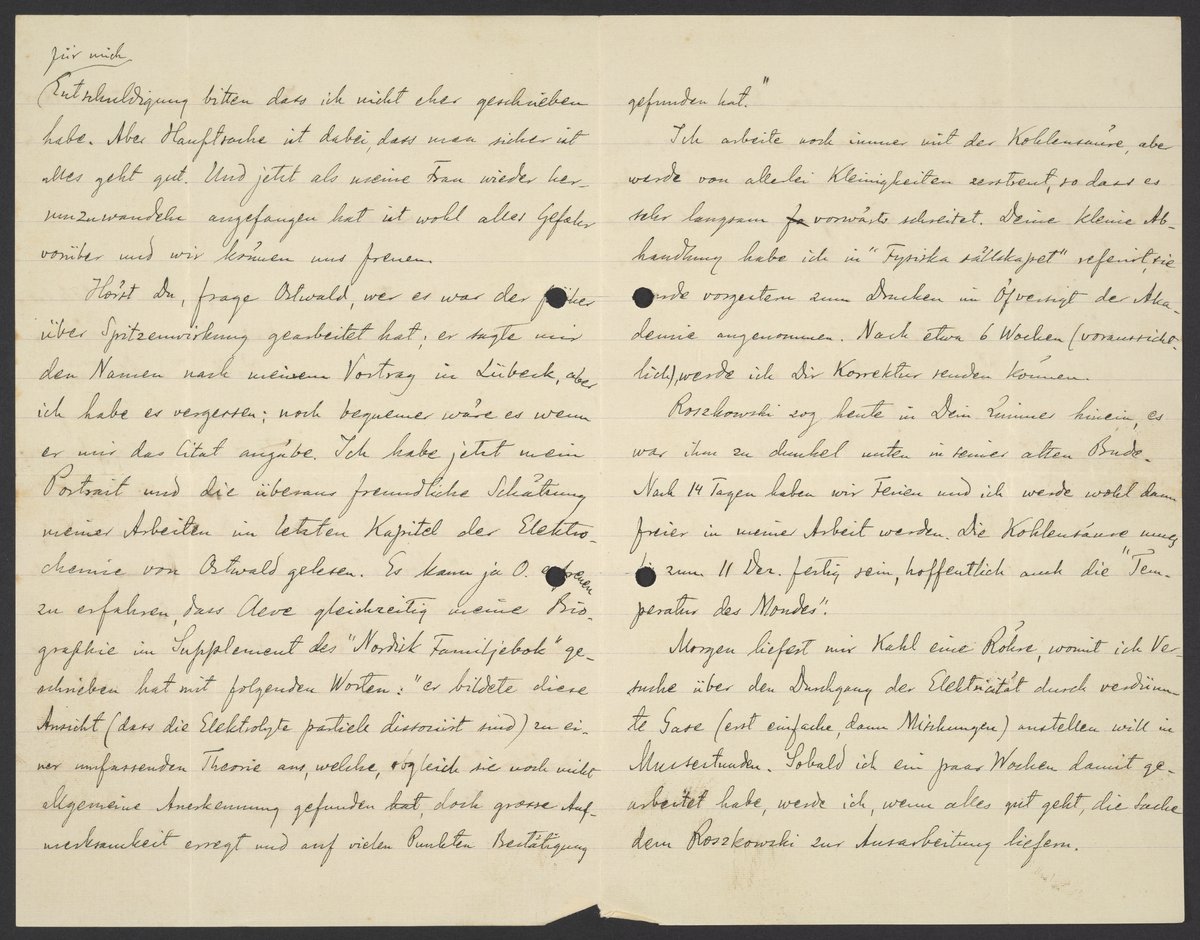 für mich
Entschuldigung bitten dass ich nicht eher geschrieben
habe. Aber Hauftsache ist dabei, dass man sicher ist
alles geht gut. Und jetzt als meine Frau wieder her-
umzuwandeln angefangen hat ist wohl alles Gefahr
vorüber und wir können uns freuen.
Hörst Du, frage Ostwald, wer es war der früher
über Spitzenwirkung gearbeitet hat; er sagte mir
den Namen nach meinem Vortrag in Lübeck, aber
ich habe es vergessen; noch bequemer wäre es wenn
er mir das Citat angäbe. Ich habe jetzt mein
Portrait und die überaus freundliche Schätzung
meiner Arbeiten im letzten Kapitel der Elektro-
chemie von Ostwald gelesen. Es kann ja O. freuen
zu erfahren, dass Cleve gleichzeitig meine Bio-
graphie im Supplement des "Nordisk Familjebok" ge-
schrieben hat mit folgenden Worten: "er bildete diese
Ansicht (dass die Elektrolyte partiell dissociirt sind) zu ei-
ner umfassenden Theorie aus, welche, obgleich sie noch nicht
allgemeine Anerkennung gefunden hat, doch grosse Auf-
merksamkeit erregt und auf vielen Punkten Bestätigung
gefunden hat."
Ich arbeite noch immer mit der Kohlensäure, aber
werde von allerlei Kleinigkeiten zerstreut, so dass es
sehr langsam vorwärts schreitet. Deine kleine Ab-
handlung habe ich in "Fysiska sällskapet" referirt, sie
wurde vorgestern zum Drucken im Öfversigt der Aka-
demie angenommen. Nach etwa 6 Wochen (voraussicht-
lich), werde ich Dir Korrektur senden können.
Roszkowski zog heute in Dein Zimmer hinein, es
war ihm zu dunkel unten in seiner alten Bude.
Nach 14 Tagen haben wir Ferien und ich werde wohl dann
freier in meiner Arbeit werden. Die Kohlensäure muss
bis zum 11 Dez. fertig sein, hoffentlich auch die "Tem-
peratur des Mondes".
Morgen liefert mir Kahl eine Röhre, womit ich Ver-
suche über den Durchgang der Elektricität durch verdünn-
te Gase (erst einfache, dann Mischungen) anstellen will in
Mussestunden. Sobald ich ein paar Wochen damit ge-
arbeitet habe, werde ich, wenn alles gut geht, die Sache
dem Roszkowski zur Ausarbeitung liefern.